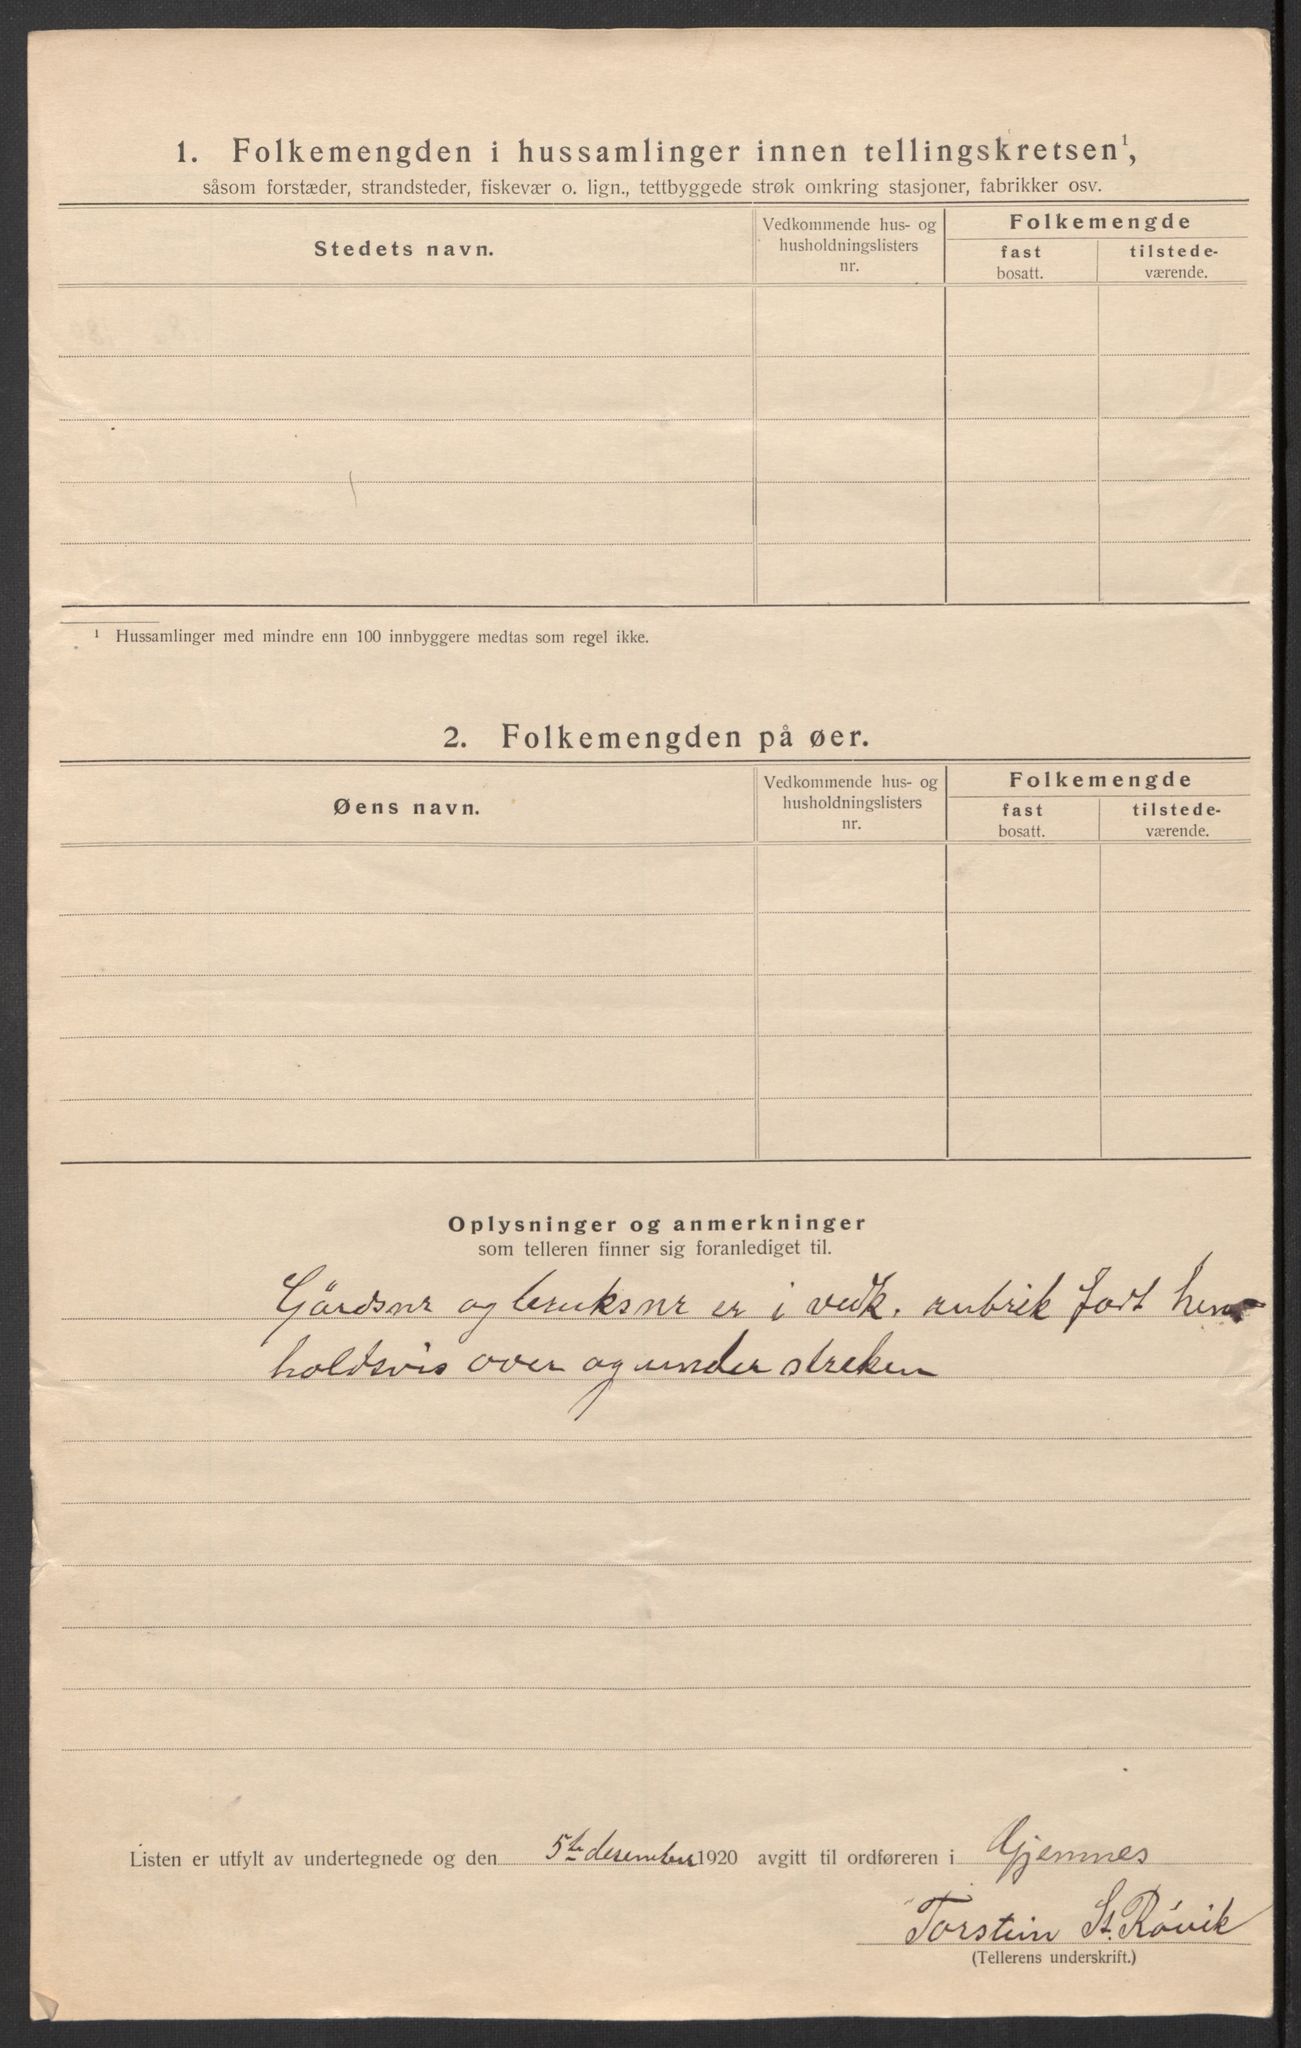 1. Folkemengden i hussamlinger innen tellingskretsen¹,
såsom forstæder, strandsteder, fiskevær o. lign., tettbyggede strøk omkring stasjoner, fabrikker osv.
Stedets navn.
Vedkommende hus- og
husholdningslisters
nr.
Folkemengde
fast
bosatt.
tilstede-
værende.
¹ Hussamlinger med mindre enn 100 innbyggere medtas som regel ikke.
2. Folkemengden på øer.
Øens navn.
Vedkommende hus- og
husholdningslisters
nr.
Folkemengde
fast
bosatt.
tilstede-
værende.
Oplysninger og anmerkninger
som telleren finner sig foranlediget til.
Gårdsnr og bruksnr er i vedk. rubrik fört hen
holdsvis over og under streken
Listen er utfylt av undertegnede og den 5te desember 1920 avgitt til ordføreren i Gjemnes
Torstein St. Rövik
(Tellerens underskrift.)